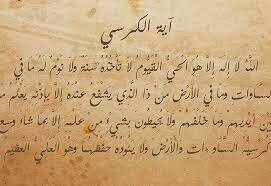 آية الكرسي
اللهُ لا إله إلا هو الحيُّ القيُّوم لا تأخذُهُ سِنةٌ ولا نومٌ له ما في
السماوات وما في الأرض من ذا الذي يشفع عنده إلا بإذنه يعلم ما
بين أيديهم وما خلفهم ولا يحيطون بشيءٍ من علمه إلا بما شاء وسع
كرسيه السماوات والأرض ولا يئوده حفظهما وهو العلي العظيم